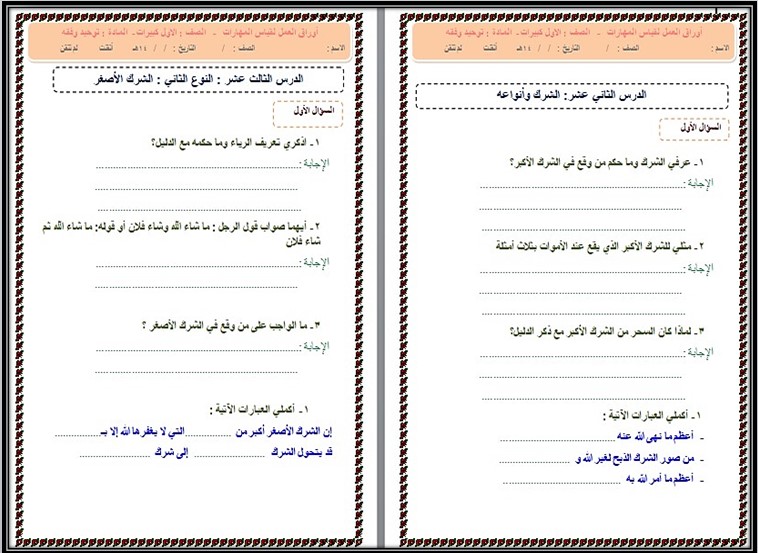 أوراق العمل لقياس المهارات - الصف : الأول كبيرات - المادة : توحيد وفقه
الاسم : الصف : / التاريخ : / / ١٤هـ أتقنت لم تتقن
الدرس الثاني عشر: الشرك وأنواعه
السؤال الأول
١- عرفي الشرك وما حكم من وقع في الشرك الأكبر؟
الإجابة :
٢- مثلي للشرك الأكبر الذي يقع عند الأموات بثلاث أمثلة
الإجابة :
٣- لماذا كان السحر من الشرك الأكبر مع ذكر الدليل؟
الإجابة :
١- أكملي العبارات الآتية :
- أعظم ما نهى الله عنه ............
- من صور الشرك الذبح لغير الله و ............
- أعظم ما أمر الله به ............
أوراق العمل لقياس المهارات - الصف : الأول كبيرات - المادة : توحيد وفقه
الاسم : الصف : / التاريخ : / / ١٤هـ أتقنت لم تتقن
الدرس الثالث عشر : النوع الثاني : الشرك الأصغر
السؤال الأول
١- اذكري تعريف الرياء وما حكمه مع الدليل؟
الإجابة :
٢- أيهما صواب قول الرجل : ما شاء الله وشاء فلان أو قوله: ما شاء الله ثم
شاء فلان
الإجابة :
٣- ما الواجب على من وقع في الشرك الأصغر ؟
الإجابة :
١- أكملي العبارات الآتية :
إن الشرك الأصغر أكبر من ............ التي لا يغفرها الله إلا بـ ............
قد يتحول الشرك ............ إلى شرك ............